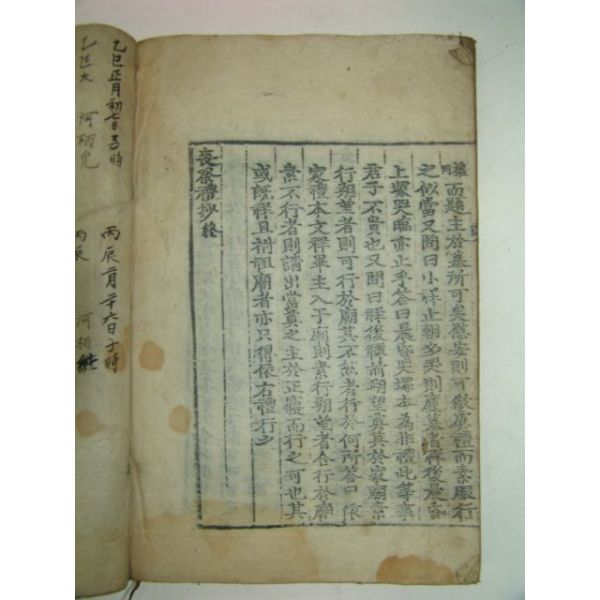 而題主於墓所可矣慰安則可㒒廬禮而素服行
之似當又問曰小祥止朝夕哭則廬墓者祥後晨昏
上墓哭臨亦止乎答曰晨昏哭墓本為非禮此等事
君子不貴也又問曰祥後禫前朔望奠其於家廟素
行朔望者則可行於廟其不然者行於何所答曰依
家禮本文祥畢主入于廟則素行朔望者合行於廟
素不行者則請出當奠之主於正寢而行之可也其
或旣祥且祔祖廟者亦只得依右禮行之
喪祭禮抄終
乙巳正月初七日 時
丙辰二月二十六日子時
乙巳 河相
丙辰 河相